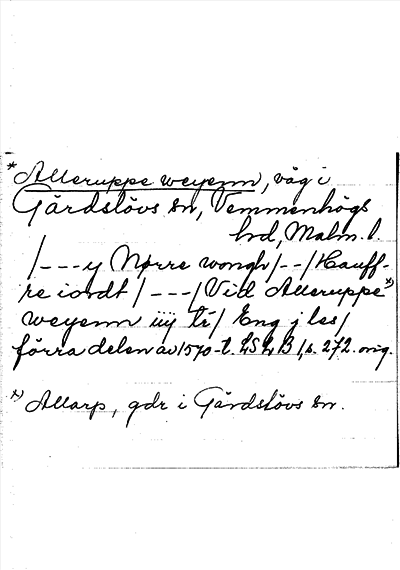 * Alleruppe weyenn, väg i
Gärdslövs sn, Vemmenhögs
hd, Malm. l.
/---y Nørre wongh/--/Hauff-
re iordt/---/Vid Alleruppe x)
weyenn iiij tr/ Eng j les/
förra delen av 1570-t. LSLB 1, s. 272. orig.
x) Allarp, gdr i Gärdslövs sn.